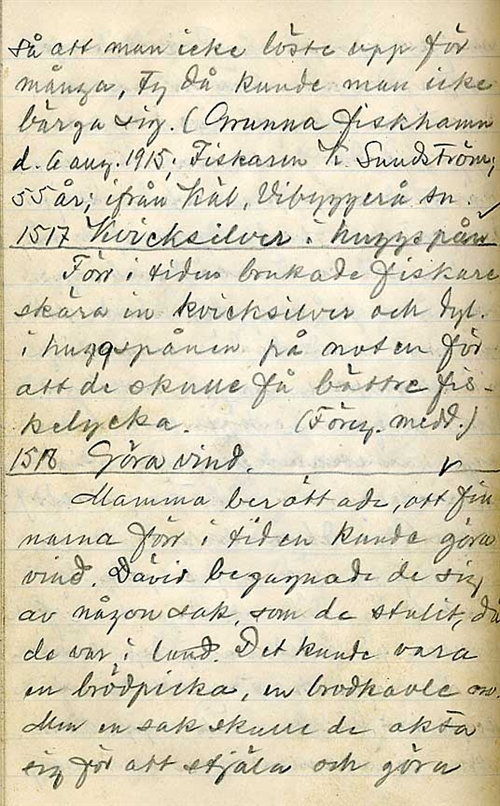 så att man icke löste upp för
många, ty då kunde man icke
bärga sig. (Grunna fiskhamn
d. 6 aug. 1915; Fiskaren K. Sundström;
55 år; ifrån Käl, Vibyggerå sn.
1517 Kvicksilver i huggspån.
Förr i tiden brukade fiskare
skära in kvicksilver och dyl.
i huggspånen på noten för
att de skulle få bättre fis-
kelycka. (Föreg. medd.)
1518 Göra vind.
Mamma berättade, att fin
narna förr i tiden kunde göra
vind. Därvid begagnade de sig
av någon sak, som de stulit, då
de var i land. Det kunde vara
en brödpicka, en brödkavle
Men en sak skulle de akta
sig för att stjäla och göra